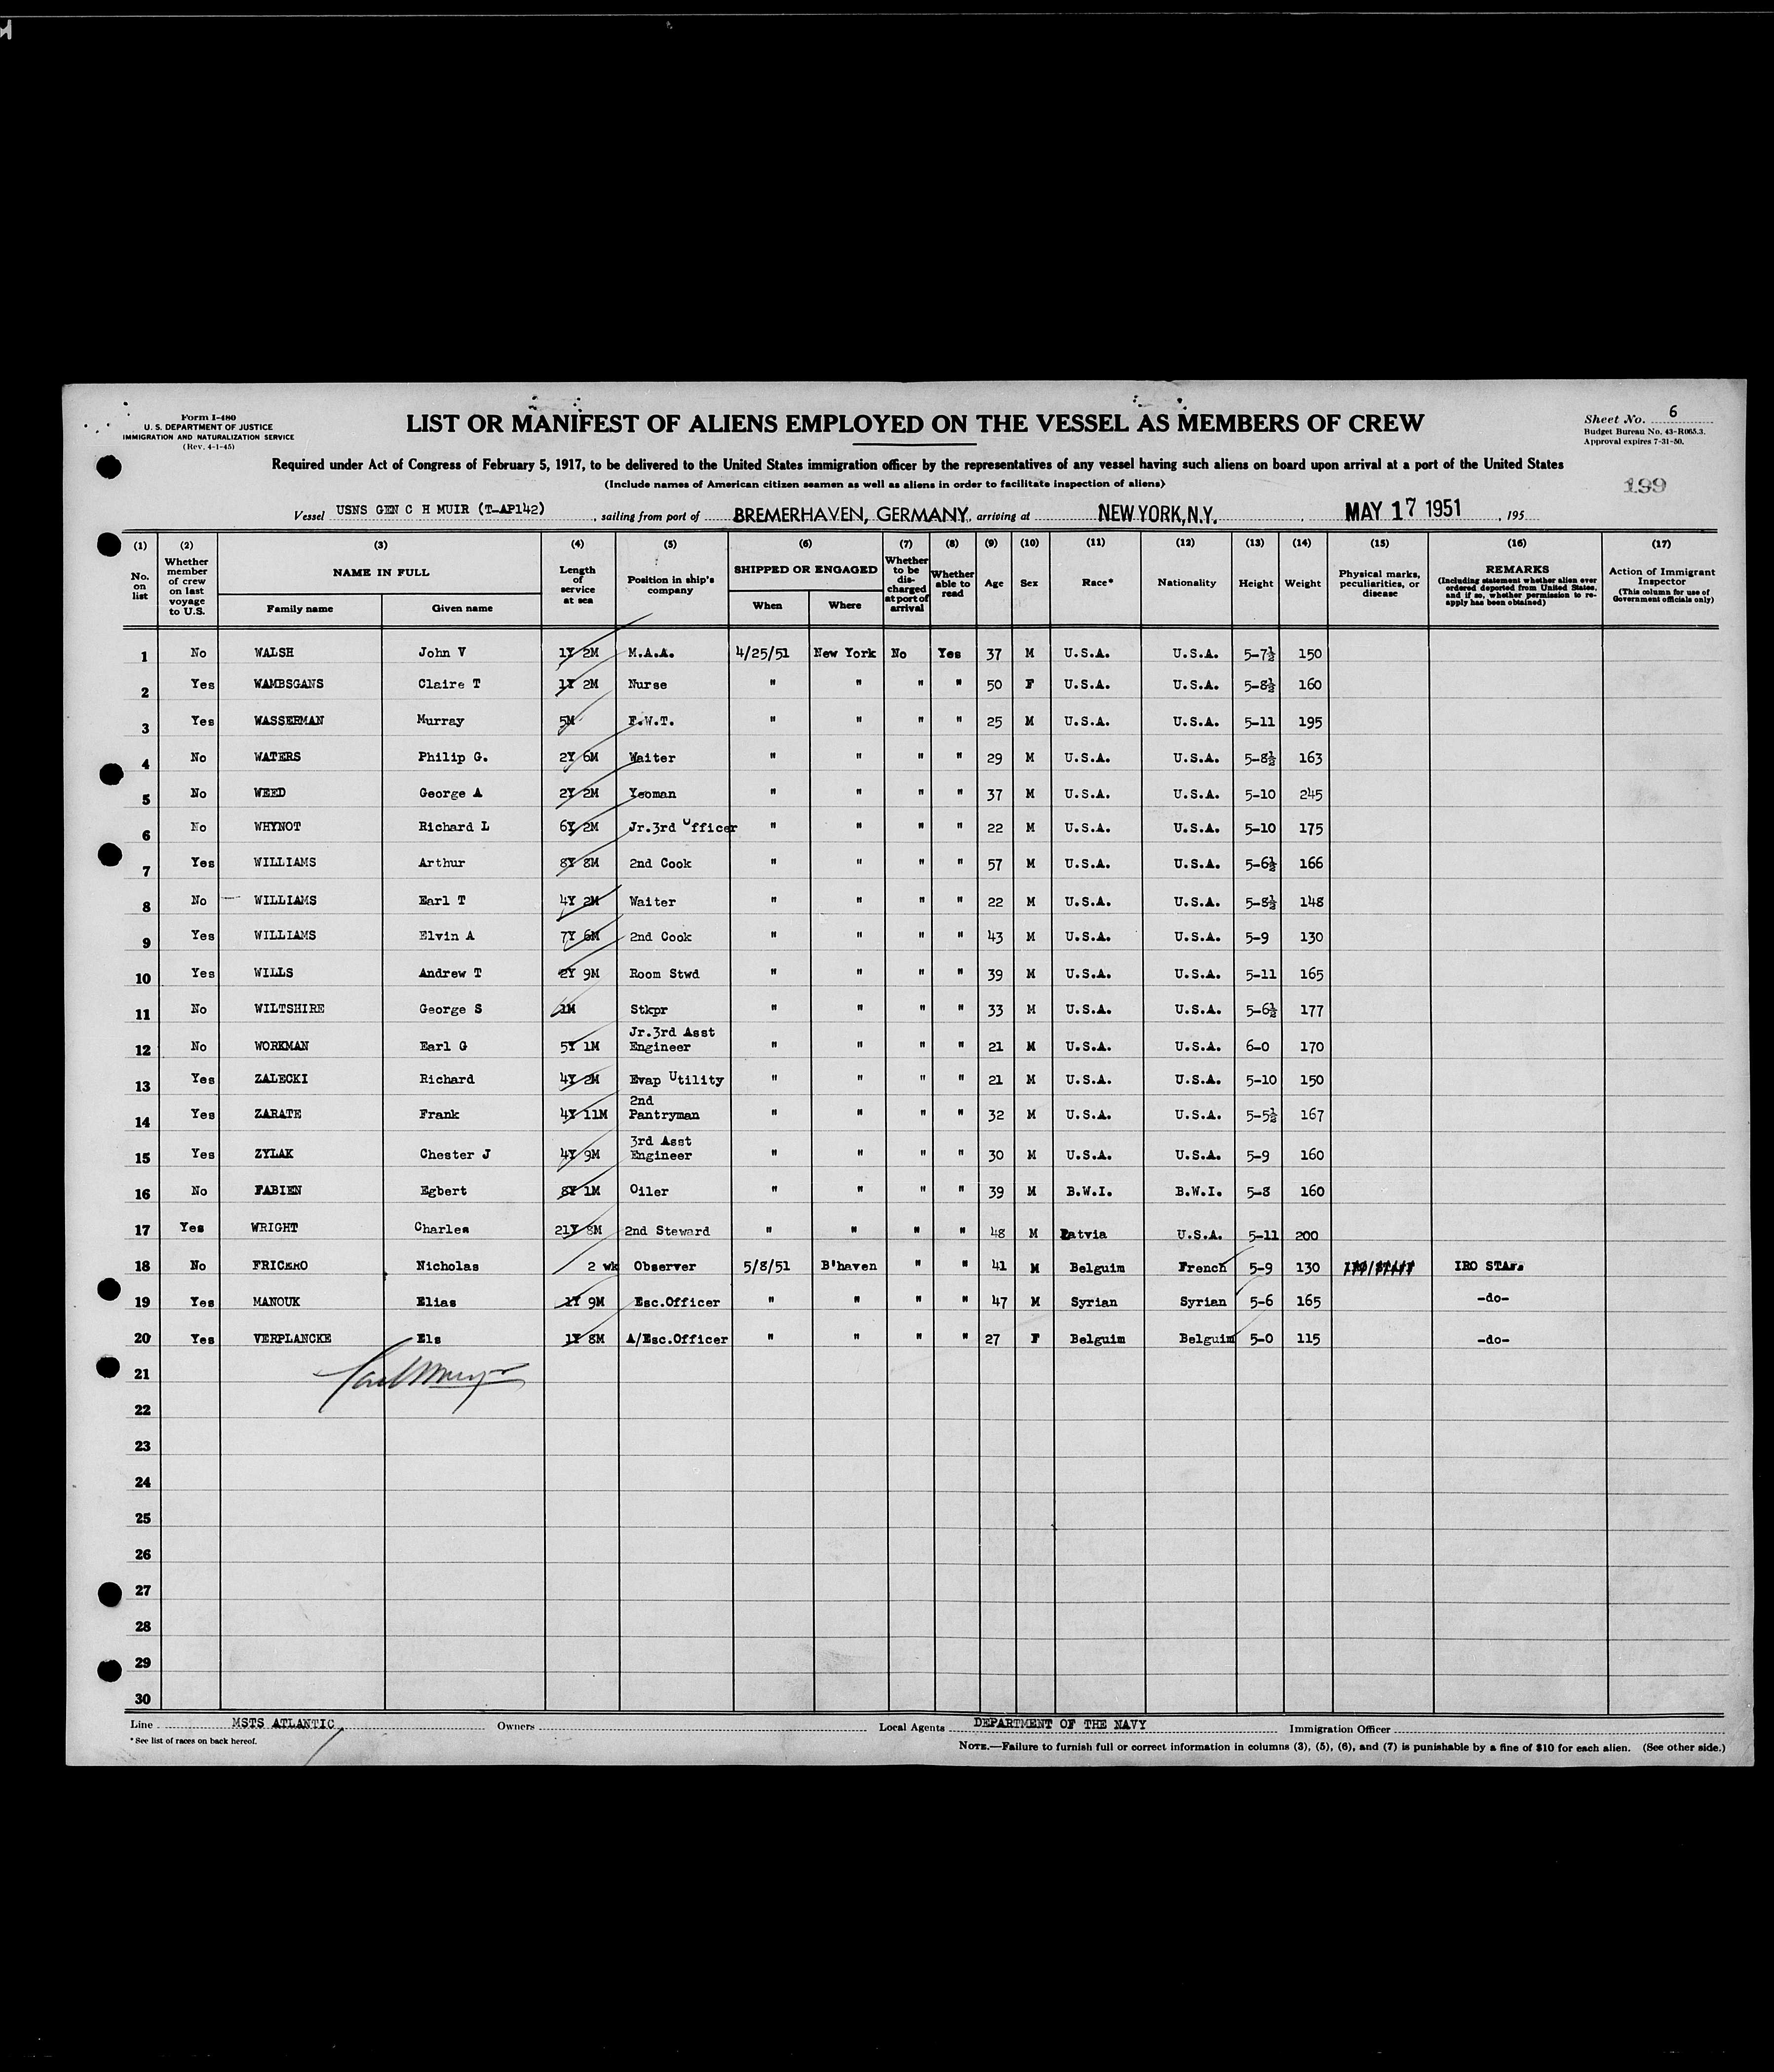 Form I-480
U. S. DEPARTMENT OF JUSTICE
IMMIGRATION AND NATURALIZATION SERVICE
(Rev. 4-1-45)
LIST OR MANIFEST OF ALIENS EMPLOYED ON THE VESSEL AS MEMBERS OF CREW
Sheet No. 6
Budget Bureau No. 43-R065.3.
Approval expires 7-31-50.
Required under Act of Congress of February 5, 1917, to be delivered to the United States immigration officer by the representatives of any vessel having such aliens on board upon arrival at a port of the United States
(Include names of American citizen seamen as well as aliens in order to facilitate inspection of aliens)
199
Vessel USNS GEN C H MUIR (T-AP142), sailing from port of BREMERHAVEN, GERMANY, arriving at NEW YORK, N.Y., MAY 17 1951, 195
(1) (2) (3) (4) (5) (6) (7) (8) (9) (10) (11) (12) (13) (14) (15) (16) (17)
No. on list
Whether member of crew on last voyage to U.S.
NAME IN FULL
Family name
Given name
Length of service at sea
Position in ship's company
SHIPPED OR ENGAGED
When
Where
Whether to be discharged at port of arrival
Whether able to read
Age
Sex
Race*
Nationality
Height
Weight
Physical marks, peculiarities, or disease
REMARKS
(Including statement whether alien ever ordered deported from United States, and if so, whether permission to re-apply has been obtained)
Action of Immigrant Inspector
(This column for use of Government officials only)
1 No WALSH John V 1Y 2M M.A.A. 4/25/51 New York No Yes 37 M U.S.A. U.S.A. 5-7½ 150
2 Yes WAMBSGANS Claire T 1Y 2M Nurse " " " " 50 F U.S.A. U.S.A. 5-8½ 160
3 Yes WASSERMAN Murray 5M F.W.T. " " " " 25 M U.S.A. U.S.A. 5-11 195
4 No WATERS Philip G. 2Y 6M Waiter " " " " 29 M U.S.A. U.S.A. 5-8½ 163
5 No WEED George A 2Y 2M Yeoman " " " " 37 M U.S.A. U.S.A. 5-10 245
6 No WHYNOT Richard L 6Y 2M Jr.3rd Officer " " " " 22 M U.S.A. U.S.A. 5-10 175
7 Yes WILLIAMS Arthur 8Y 8M 2nd Cook " " " " 57 M U.S.A. U.S.A. 5-6½ 166
8 No WILLIAMS Earl T 4Y 2M Waiter " " " " 22 M U.S.A. U.S.A. 5-8½ 148
9 Yes WILLIAMS Elvin A 7Y 6M 2nd Cook " " " " 43 M U.S.A. U.S.A. 5-9 130
10 Yes WILLS Andrew T 2Y 9M Room Stwd " " " " 39 M U.S.A. U.S.A. 5-11 165
11 No WILTSHIRE George S 1M Stkpr " " " " 33 M U.S.A. U.S.A. 5-6½ 177
12 No WORKMAN Earl G 5Y 1M Jr.3rd Asst Engineer " " " " 21 M U.S.A. U.S.A. 6-0 170
13 Yes ZALECKI Richard 4Y 2M Evap Utility " " " " 21 M U.S.A. U.S.A. 5-10 150
14 Yes ZARATE Frank 4Y 11M 2nd Pantryman " " " " 32 M U.S.A. U.S.A. 5-5½ 167
15 Yes ZYLAK Chester J 4Y 9M 3rd Asst Engineer " " " " 30 M U.S.A. U.S.A. 5-9 160
16 No FABIEN Egbert 8Y 1M Oiler " " " " 39 M B.W.I. B.W.I. 5-8 160
17 Yes WRIGHT Charles 21Y 8M 2nd Steward " " " " 48 M Latvia U.S.A. 5-11 200
18 No FRICERO Nicholas 2 wk Observer 5/8/51 B'haven " " 41 M Belguim French 5-9 130 IRO STAFF
19 Yes MANOUK Elias 1Y 9M Esc.Officer " " " " 47 M Syrian Syrian 5-6 165 -do-
20 Yes VERPLANCKE Els 1Y 8M A/Esc.Officer " " " " 27 F Belguim Belguim 5-0 115 -do-
21
22
23
24
25
26
27
28
29
30
Line MSTS ATLANTIC Owners Local Agents DEPARTMENT OF THE NAVY Immigration Officer
* See list of races on back hereof.
NOTE.—Failure to furnish full or correct information in columns (3), (5), (6), and (7) is punishable by a fine of $10 for each alien. (See other side.)